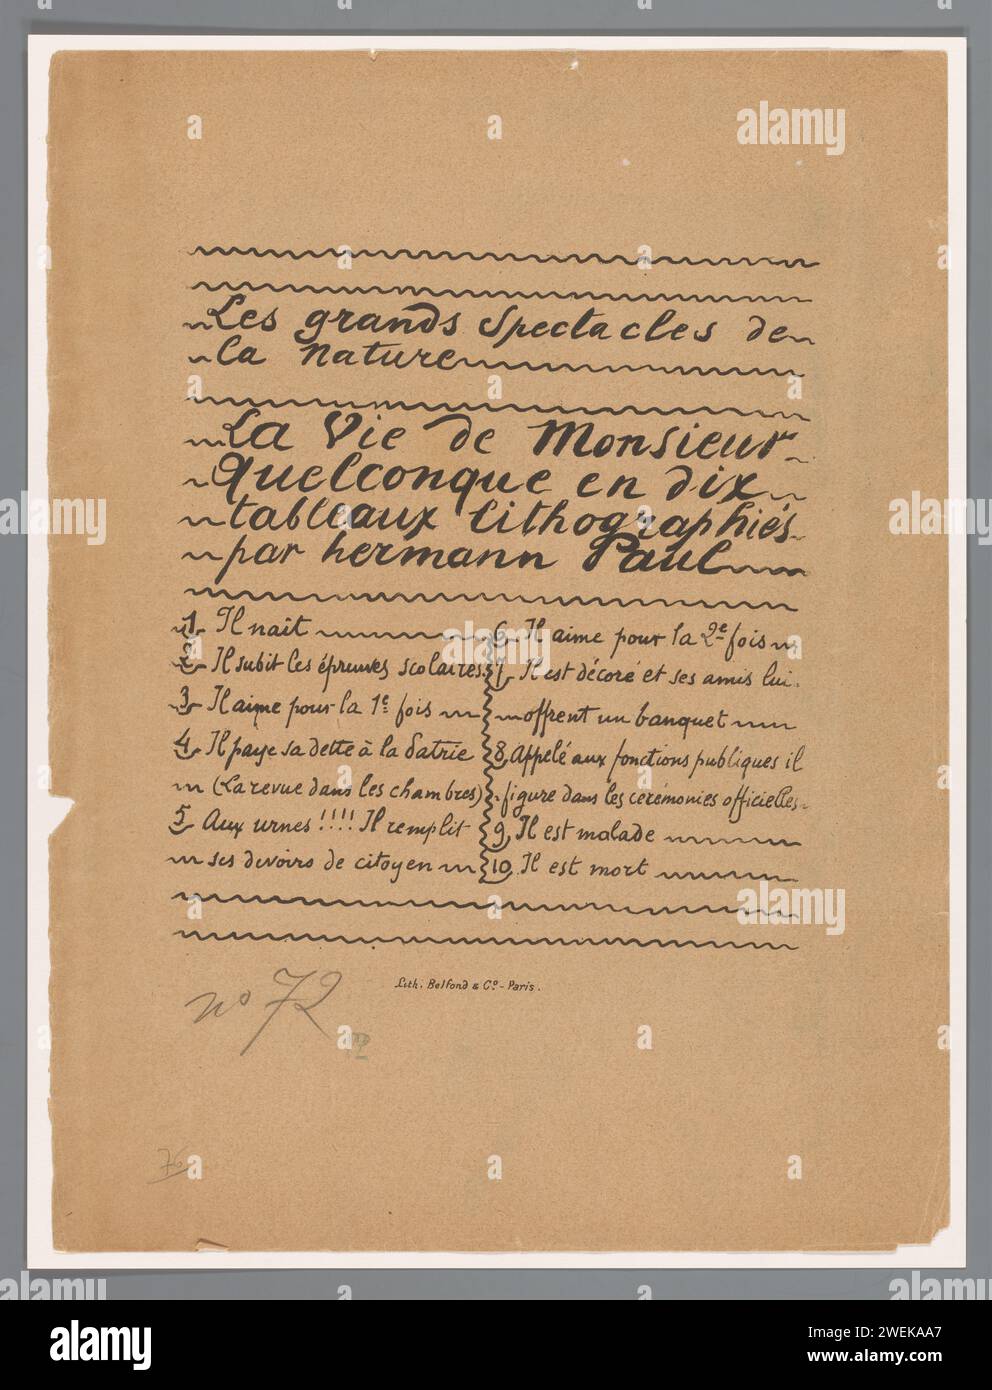 Les grands Spectacles de
la nature
La Vie de Monsieur
quelconque en dix
tableaux lithographiés
par hermann Paul
1 Il nait
2 Il subit les épreuves scolaires
3 Il aime pour la 1e fois
4 Il paye sa dette à la Patrie
(La revue dans les chambres)
5 Aux urnes !!!! Il remplit
ses devoirs de citoyen
6 Il aime pour la 2e fois
7 Il est décoré et ses amis lui
offrent un banquet
8 Appelé aux fonctions publiques il
figure dans les cérémonies officielles
9 Il est malade
10 Il est mort
Lith. Belfond & Co - Paris.
no 72
76
alamy
Image ID: 2WEKAA7
www.alamy.com